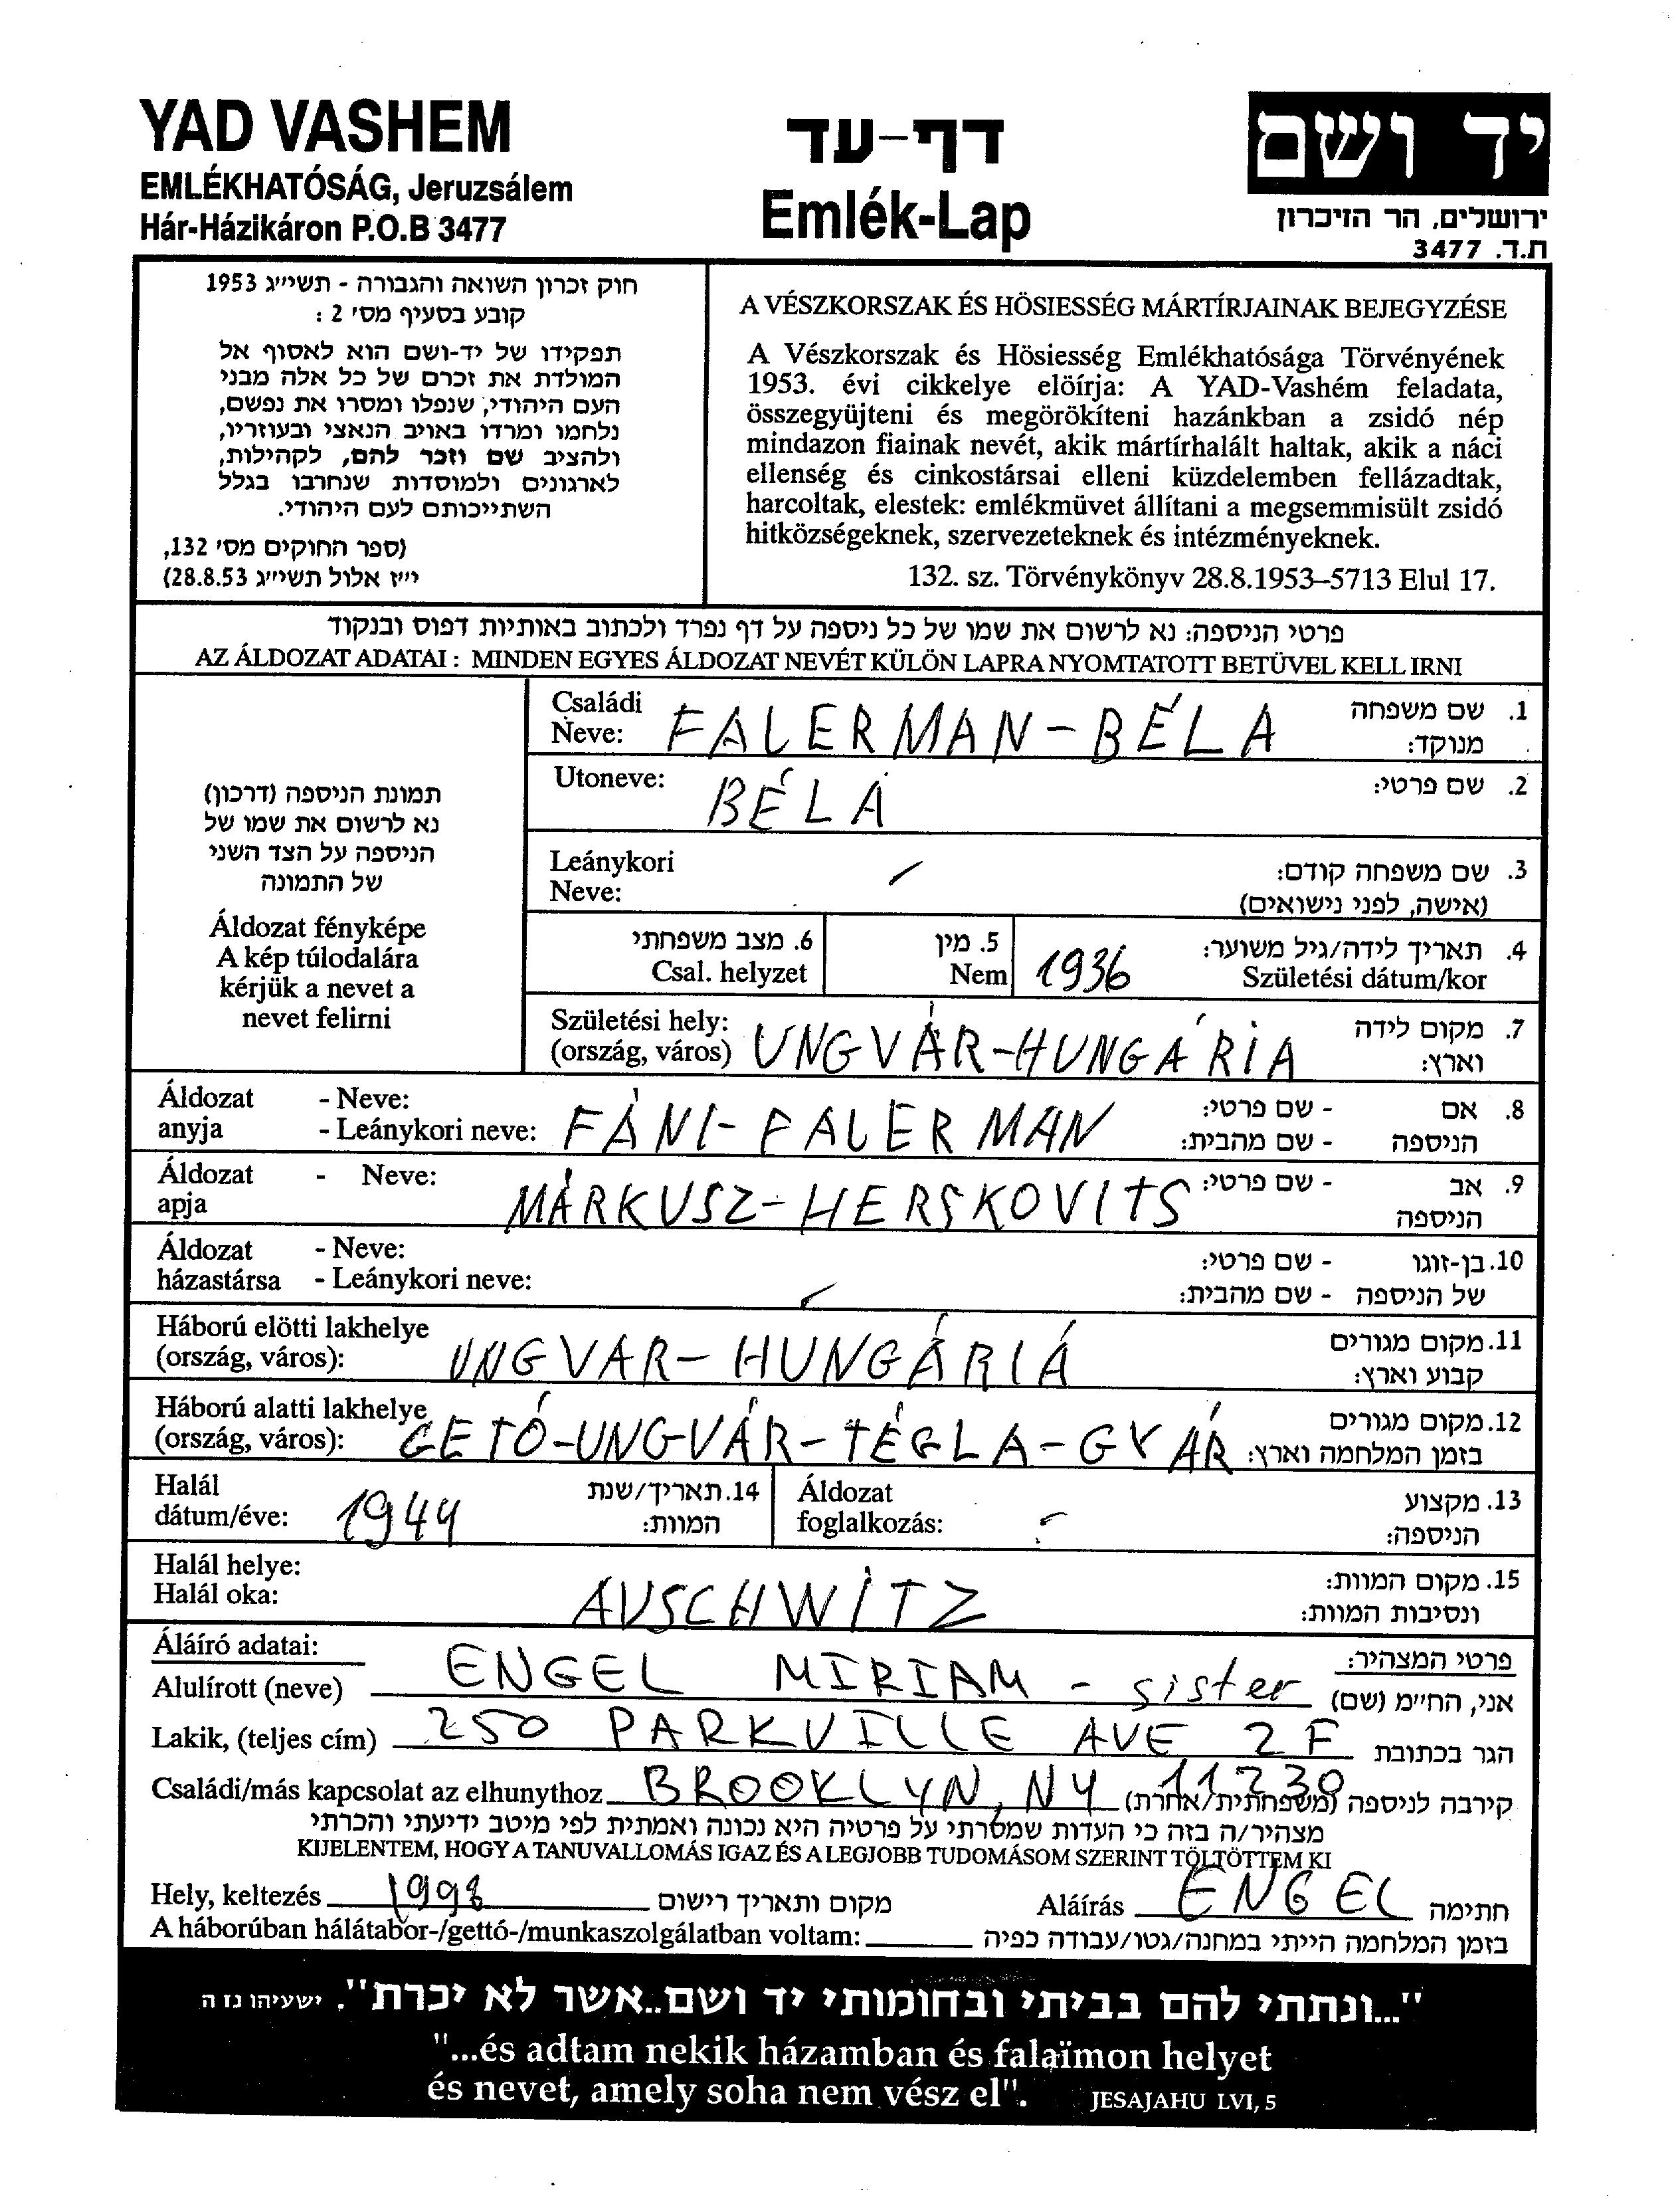 YAD VASHEM
EMLÉKHATÓSÁG, Jeruzsálem
Hár-Házikáron P.O.B 3477
דף-עד
Emlék-Lap
יד ושם
ירושלים, הר הזיכרון
ת.ד. 3477
חוק זכרון השואה והגבורה - תשי״ג 1953
קובע בסעיף מס׳ 2 :
תפקידו של יד-ושם הוא לאסוף אל
המולדת את זכרם של כל אלה מבני
העם היהודי, שנפלו ומסרו את נפשם,
נלחמו ומרדו באויב הנאצי ובעוזריו,
ולהציב שם וזכר להם, לקהילות,
לארגונים ולמוסדות שנחרבו בגלל
השתייכותם לעם היהודי.
(ספר החוקים מס׳ 132,
י״ז אלול תשי״ג 28.8.53)
A VÉSZKORSZAK ÉS HÖSIESSÉG MÁRTÍRJAINAK BEJEGYZÉSE
A Vészkorszak és Hösiesség Emlékhatósága Törvényének
1953. évi cikkelye elöírja: A YAD-Vashém feladata,
összegyüjteni és megörökíteni hazánkban a zsidó nép
mindazon fiainak nevét, akik mártírhalált haltak, akik a náci
ellenség és cinkostársai elleni küzdelemben fellázadtak,
harcoltak, elestek: emlékmüvet állítani a megsemmisült zsidó
hitközségeknek, szervezeteknek és intézményeknek.
132. sz. Törvénykönyv 28.8.1953–5713 Elul 17.
פרטי הניספה: נא לרשום את שמו של כל ניספה על דף נפרד ולכתוב באותיות דפוס ובנקוד
AZ ÁLDOZAT ADATAI : MINDEN EGYES ÁLDOZAT NEVÉT KÜLÖN LAPRA NYOMTATOTT BETÜVEL KELL IRNI
תמונת הניספה (דרכון)
נא לרשום את שמו של
הניספה על הצד השני
של התמונה
Áldozat fényképe
A kép túlodalára
kérjük a nevet a
nevet felirni
Családi
Neve: FALERMAN-BÉLA
1. שם משפחה
מנוקד:
Utoneve: BÉLÁ
2. שם פרטי:
Leánykori
Neve: -
3. שם משפחה קודם:
(אישה, לפני נישואים)
6. מצב משפחתי
Csal. helyzet
5. מין
Nem
1936
4. תאריך לידה/גיל משוער:
Születési dátum/kor
Születési hely:
(ország, város) UNGVÁR-HUNGÁRIA
7. מקום לידה
וארץ:
Áldozat - Neve:
anyja - Leánykori neve: FÁNI-FALERMAN
8. אם - שם פרטי:
הניספה - שם מהבית:
Áldozat - Neve:
apja MÁRKUSZ-HERSKOVITS
9. אב - שם פרטי:
הניספה
Áldozat - Neve:
házastársa - Leánykori neve: -
10. בן-זוגו - שם פרטי:
של הניספה - שם מהבית:
Háború elötti lakhelye
(ország, város): UNGVAR-HUNGÁRIÁ
11. מקום מגורים
קבוע וארץ:
Háború alatti lakhelye
(ország, város): GETÓ-UNGVÁR-TÉGLA-GYÁR
12. מקום מגורים
בזמן המלחמה וארץ:
Halál
dátum/éve: 1944
14. תאריך/שנת
המוות:
Áldozat
foglalkozás: -
13. מקצוע
הניספה:
Halál helye:
Halál oka: AUSCHWITZ
15. מקום המוות:
ונסיבות המוות:
Áláíró adatai:
פרטי המצהיר:
Alulírott (neve) ENGEL MIRIAM - sister אני, החי״מ (שם)
Lakik, (teljes cím) 250 PARKVILLE AVE 2F הגר בכתובת
Családi/más kapcsolat az elhunythoz BROOKLYN, NY 11230 קירבה לניספה (משפחתית/אחרת)
מצהיר/ה בזה כי העדות שמסרתי על פרטיה היא נכונה ואמתית לפי מיטב ידיעתי והכרתי
KIJELENTEM, HOGY A TANUVALLOMÁS IGAZ ÉS A LEGJOBB TUDOMÁSOM SZERINT TÖLTÖTTEM KI
Hely, keltezés 1998 מקום ותאריך רישום Aláírás ENGEL חתימה
A háborúban hálátabor-/gettó-/munkaszolgálatban voltam: בזמן המלחמה הייתי במחנה/גטו/עבודה כפיה
"...ונתתי להם בביתי ובחומותי יד ושם..אשר לא יכרת". ישעיהו נז ה
"...és adtam nekik házamban és falaïmon helyet
és nevet, amely soha nem vész el". JESAJAHU LVI, 5